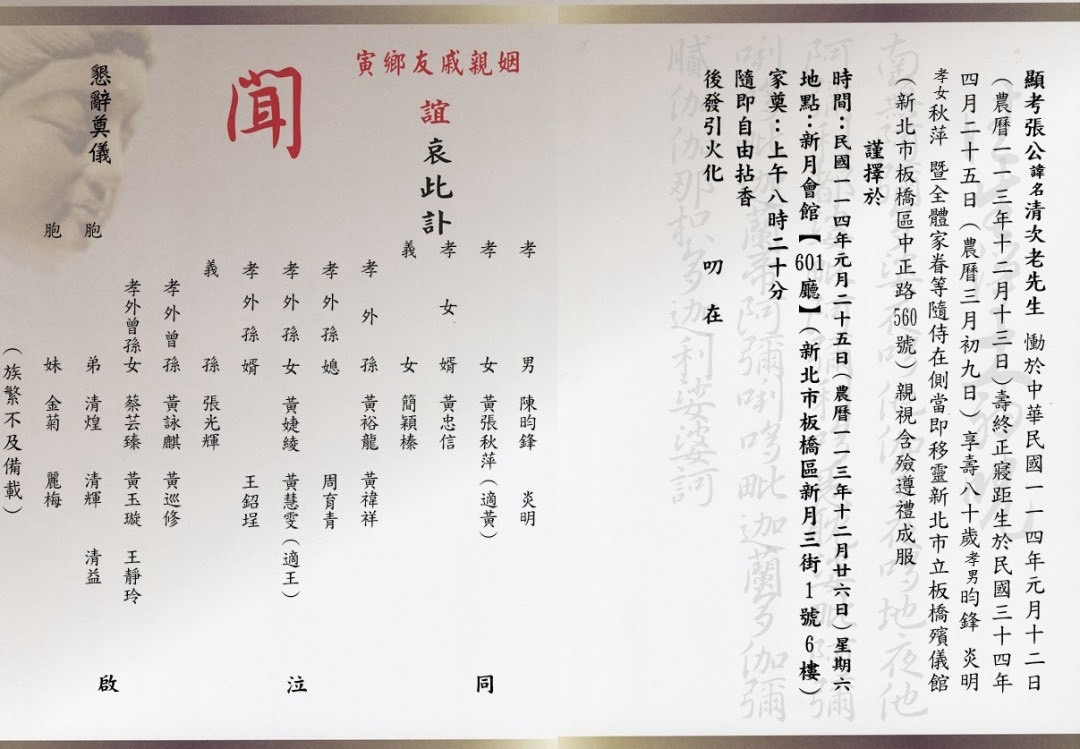 顯考張公諱名清次老先生 慟於中華民國一一四年元月十二日
(農曆一一三年十二月十三日)壽終正寢距生於民國三十四年
四月二十五日(農曆三月初九日)享壽八十歲孝男昀鋒 炎明
孝女秋萍 暨全體家眷等隨侍在側當即移靈新北市立板橋殯儀館
(新北市板橋區中正路560號)親視含殮遵禮成服
謹擇於
時間:民國一一四年元月二十五日(農曆一一三年十二月廿六日)星期六
地點:新月會館【601廳】(新北市板橋區新月三街1號6樓)
家奠:上午八時二十分
隨即自由拈香
後發引火化 叨在
姻親戚友鄉寅
誼哀此訃
聞
孝男 陳昀鋒 炎明
孝女 黃張秋萍(適黃)
孝女婿 黃忠信
義女 簡穎榛
孝外孫 黃裕龍 黃禕祥
孝外孫媳 周育青
孝外孫女 黃婕綾 黃慧雯(適王)
孝外孫婿 王鉊埕
義孫 張光輝
孝外曾孫 黃詠麒 黃巡修
孝外曾孫女 蔡芸臻 黃玉璇 王靜玲
胞弟 清煌 清輝 清益
胞妹 金菊 麗梅
(族繁不及備載)
同泣啟
懇辭奠儀